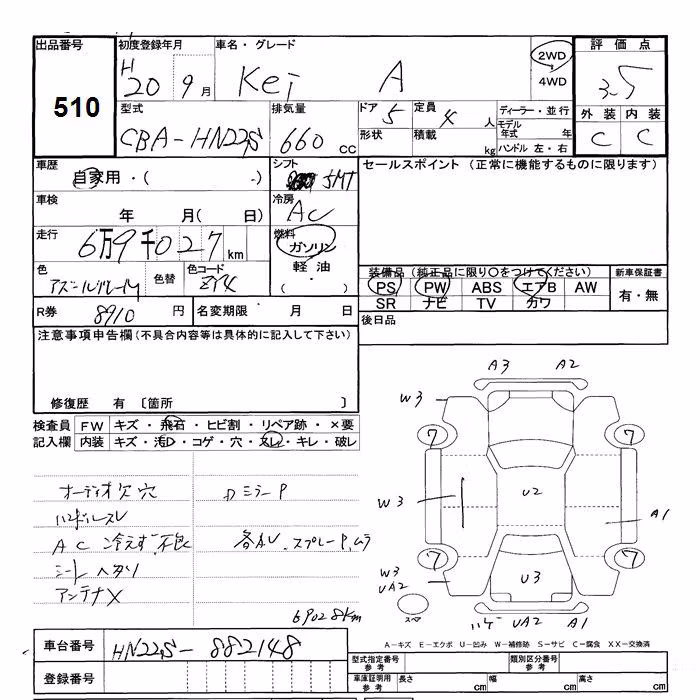 出品番号
510
初度登録年月
H 20 9月
車名・グレード
Kei A
2WD
4WD
評価点
3.5
外装 内装
C C
型式
CBA-HN22S
排気量
660 cc
ドア 5
形状
定員 4 人
積載 kg
ディーラー・並行
モデル年式 年
ハンドル 左・右
車歴
自家用・( )
シフト
5MT
セールスポイント (正常に機能するものに限ります)
車検
年 月( 日)
冷房
AC
走行
6万9千027km
燃料
ガソリン
軽油
( ・ )
色
色替
色コード
ZY4
装備品 (純正品に限り○をつけてください)
PS PW ABS エアB AW
SR ナビ TV カワ
新車保証書
有・無
R券 8910 円
名変期限 月 日
後日品
注意事項申告欄(不具合内容等は具体的に記入して下さい)
修復歴 有 〔箇所 〕
検査員記入欄
FW キズ・飛石・ヒビ割・リペア跡・×要
内装 キズ・汚D・コゲ・穴・スレ・キレ・破レ
オーディオ欠 穴
DミラーP
ハンドルスレ
AC 冷えず 不良
各AU、スプレーP、ムラ
シートヘタリ
アンテナX
69028km
A3 A2
W3
7 7
W3 U2 A1
W3
UA2
7 7
U3
スペア
ハゲ UA2 A1
A-キズ E-エクボ U-凹み W-補修跡 S-サビ C-腐食 XX-交換済
車台番号 HN22S-882148
登録番号
型式指定番号 参考
類別区分番号 参考
車庫証明用 参考
長さ cm 幅 cm 高さ cm